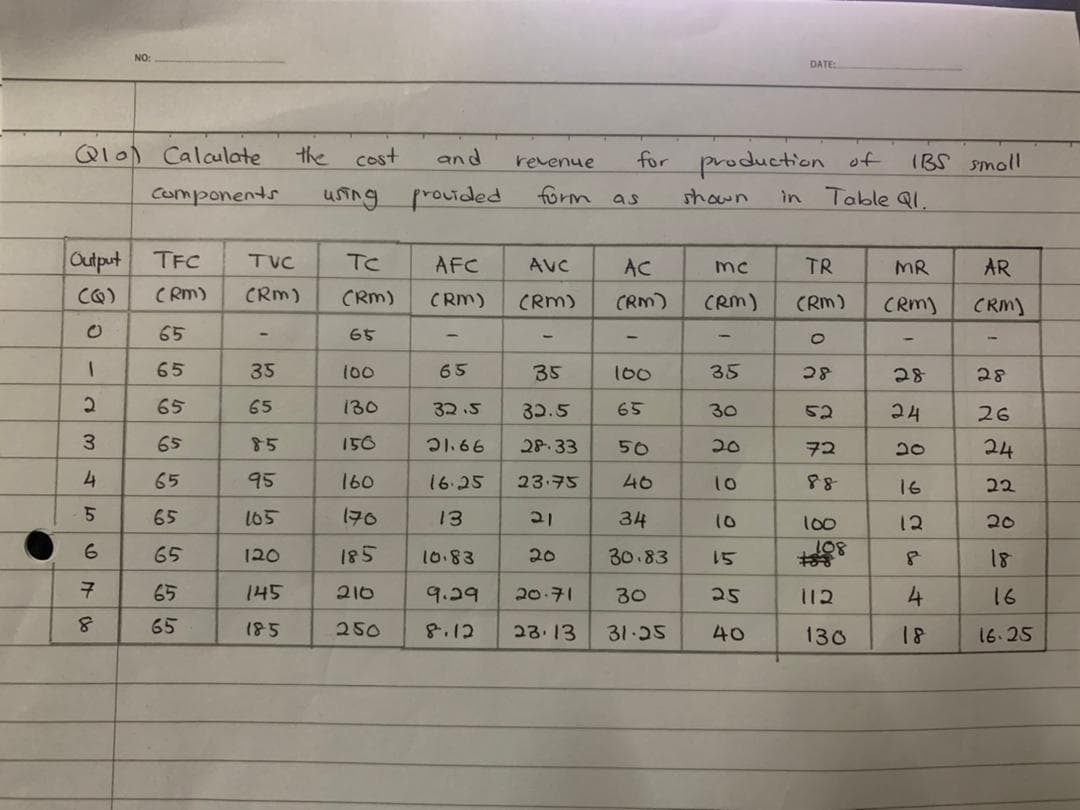 NO:
DATE:
Q1 a) Calculate the cost and revenue for production of IBS small
components using provided form as shown in Table Q1.
Output TFC TVC TC AFC AVC AC MC TR MR AR
(Q) (RM) (RM) (RM) (RM) (RM) (RM) (RM) (RM) (RM) (RM)
0 65 - 65 - - - - 0 - -
1 65 35 100 65 35 100 35 28 28 28
2 65 65 130 32.5 32.5 65 30 52 24 26
3 65 85 150 21.66 28.33 50 20 72 20 24
4 65 95 160 16.25 23.75 40 10 88 16 22
5 65 105 170 13 21 34 10 100 12 20
6 65 120 185 10.83 20 30.83 15 108 8 18
7 65 145 210 9.29 20.71 30 25 112 4 16
8 65 185 250 8.12 23.13 31.25 40 130 18 16.25